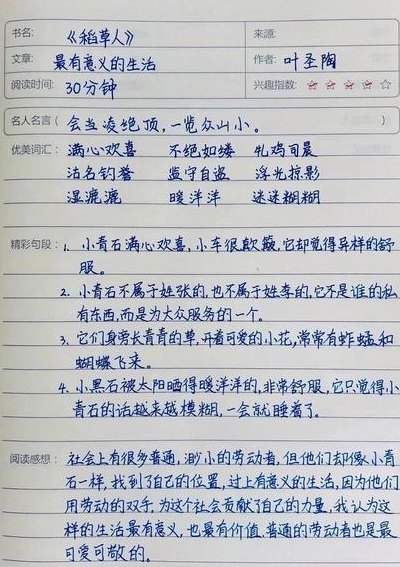 书名: 《稻草人》 来源:
文章: 最有意义的生活 作者: 叶圣陶
阅读时间: 30分钟 兴趣指数: ☆ ☆ ☆ ☆ ☆
名人名言( 会当凌绝顶,一览众山小。 )
优美词汇: 满心欢喜 不绝如缕 牝鸡司晨
沽名钓誉 监守自盗 浮光掠影
湿漉漉 暖洋洋 迷迷糊糊
精彩句段: 1. 小青石满心欢喜,小车很颠簸,它却觉得异样的舒
服。
2. 小青石不属于姓张的,也不属于姓李的,它不是谁的私
有东西,而是为大众服务的一个。
3. 它们身旁长青青的草,开着可爱的小花,常常有蚱蜢和
蝴蝶飞来。
4. 小黑石被太阳晒得暖洋洋的,非常舒服,它只觉得小
青石的话越来越模糊,一会就睡着了。
阅读感想: 社会上有很多普通,渺小的劳动者,但他们却像小青
石一样,找到了自己的位置,过上有意义的生活,因为他们
用劳动的双手,为这个社会贡献了自己的力量,我认为这
样的生活最有意义,也最有价值,普通的劳动者也是最
可爱可敬的。